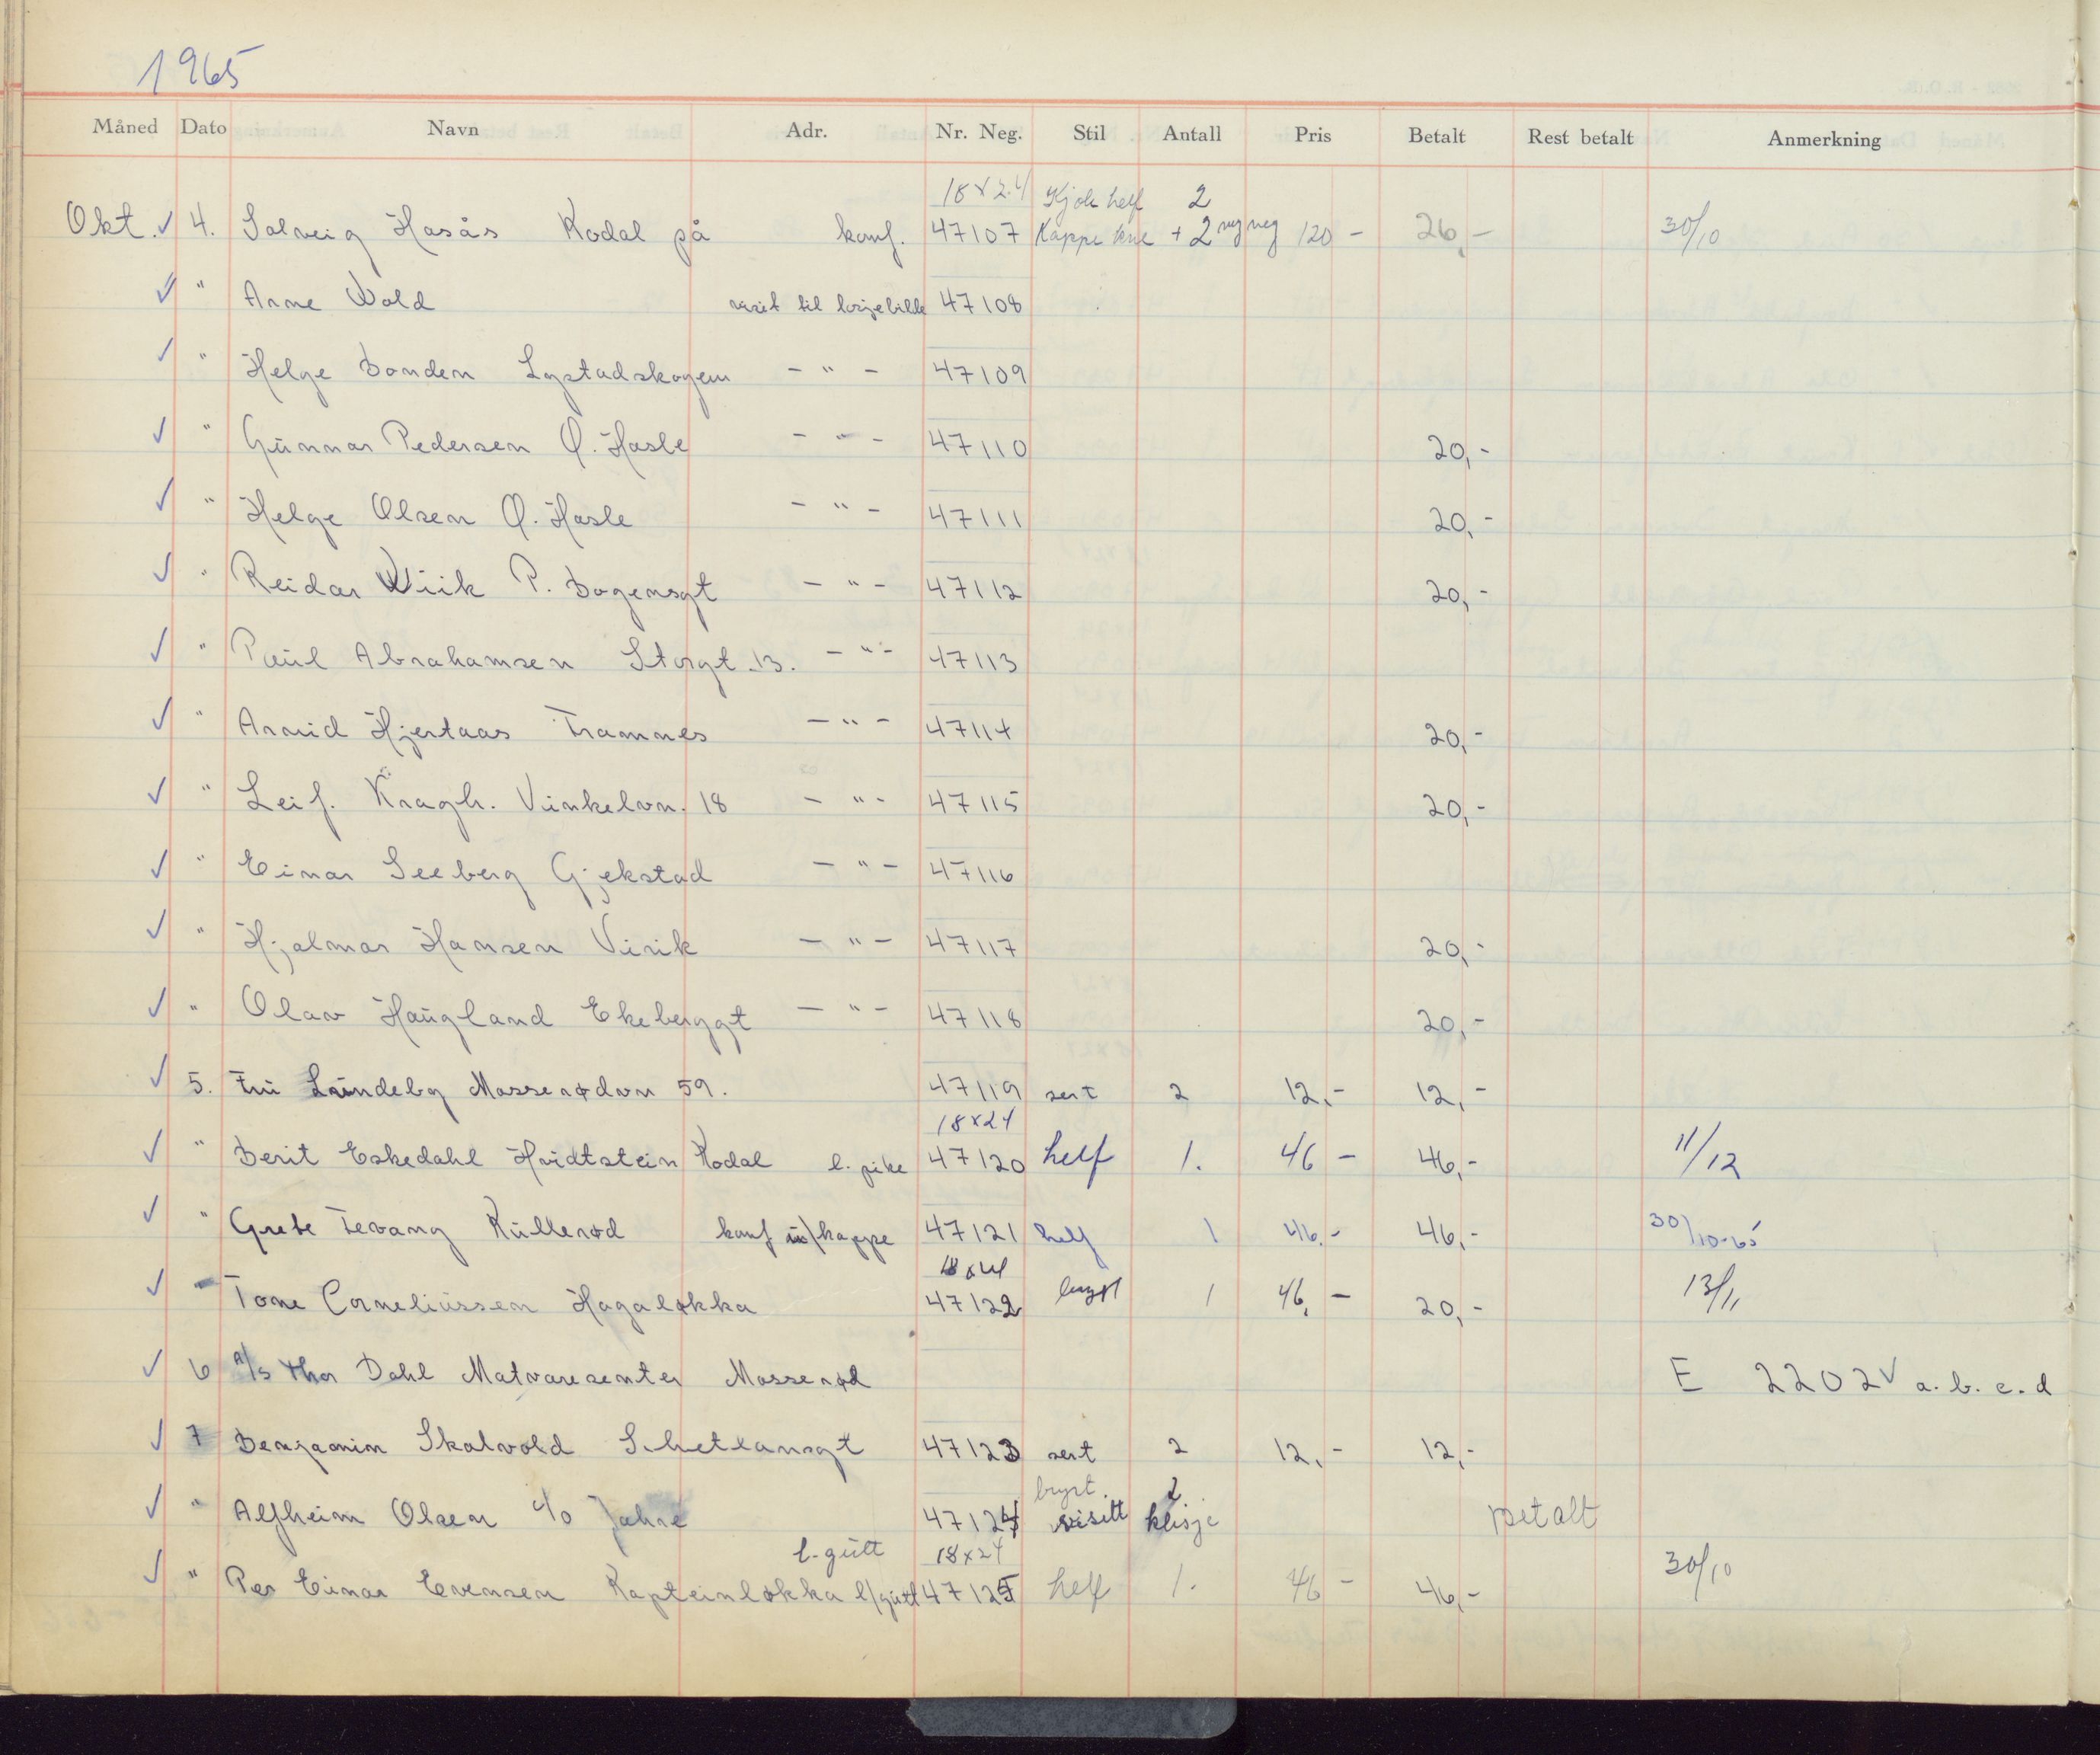 1965
Måned Dato Navn Adr. Nr. Neg. Stil Antall Pris Betalt Rest betalt Anmerkning
18x24 Kjole helf 2
Okt. ✓ 4. Solveig Hasås Kodal på konf. 47107 Kappe kne + 2 neg 120 - 26,- 30/10
✓ " Arne Wold visit til losjebilde 47108
✓ " Helge Bonden Lystadskogen - " - 47109
✓ " Gunnar Pedersen Ø. Hasle - " - 47110 20,-
✓ " Helge Olsen Ø. Hasle - " - 47111 20,-
✓ " Reidar Wiik P. Bogensgt - " - 47112 20,-
✓ " Paul Abrahamsen Storgt. 13. - " - 47113
✓ " Arvid Hjertaas Framnes - " - 47114 20,-
✓ " Leif. Kragh. Vinkelvn. 18 - " - 47115 20,-
✓ " Einar Seeberg Gjekstad - " - 47116
✓ " Hjalmar Hansen Virik - " - 47117 20,-
✓ " Olav Haugland Ekeberggt - " - 47118 20,-
✓ 5. Fru Lindeby Mosserødvn 59. 47119 sert 2 12,- 12,-
18x24
✓ " Berit Eskedahl Hvidtstein Kodal l. pike 47120 helf 1. 46 - 46,- 11/12
✓ " Grete Tevang Kullerød konf u/kappe 47121 helf 1 46,- 46,- 30/10-65
18x24
✓ " Tone Corneliussen Hagaløkka 47122 bryst 1 46,- 20,- 13/11
✓ 6 A/S Thor Dahl Matvaresenter Mosserød E 2202 ✓ a. b. c. d
✓ 7 Benjamin Skalvold Schetlansgt 47123 sert 2 12,- 12,-
bryst. 2
✓ " Alfheim Olsen c/o Jahre 47124 visitt klisje betalt
l. gutt 18x24
✓ " Per Einar Evensen Kapteinløkka l/gutt 47125 helf 1. 46 - 46,- 30/10